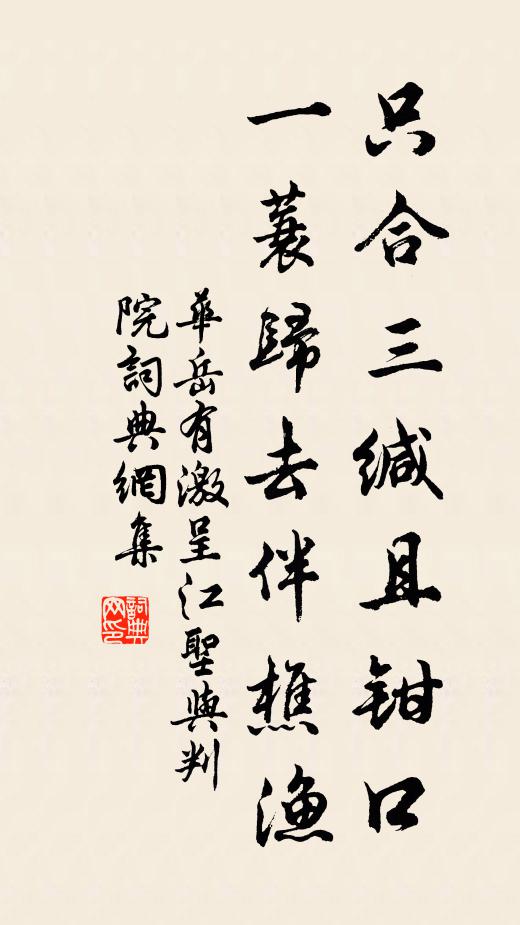 只合三缄且钳口
一蓑歸去伴樵渔
華岳有激呈江聖與判
院詞典網集
詞典
网印